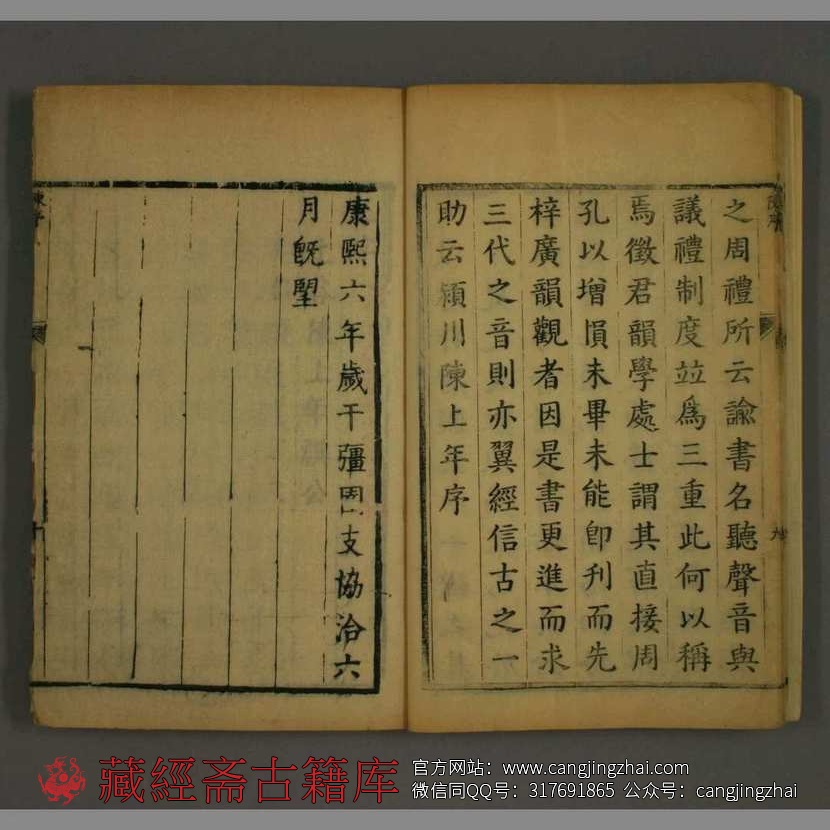 之周禮所云諭書名聽聲音與
議禮制度竝爲三重此何以稱
焉徵君韻學處士謂其直接周
孔以增愪未畢未能卽刋而先
梓廣韻觀者因是書更進而求
三代之音則亦翼經信古之一
助云潁川陳上年序
康熙六年歲干彊圉支協洽六
月旣朢
藏經斋古籍库
官方网站：www.cangjingzhai.com
微信同QQ号：317691865 公众号：cangjingzhai